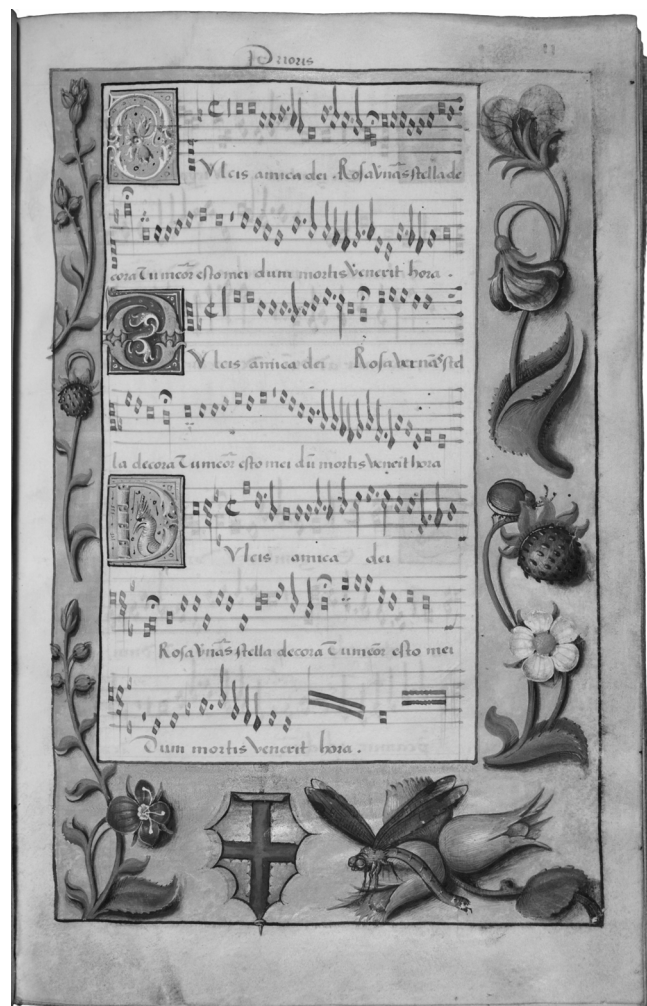 Prioris
DVlcis amica dei . Rosa vnãs stella de
cora Tu mcõr esto mei dum mortis venerit hora .
DVlcis amica dei Rosa vernãs stel
la decora Tu mcõr esto mei dũ mortis venerit hora
DVlcis amica dei
Rosa vnãs stella decora Tu mcõr esto mei
Dum mortis venerit hora .